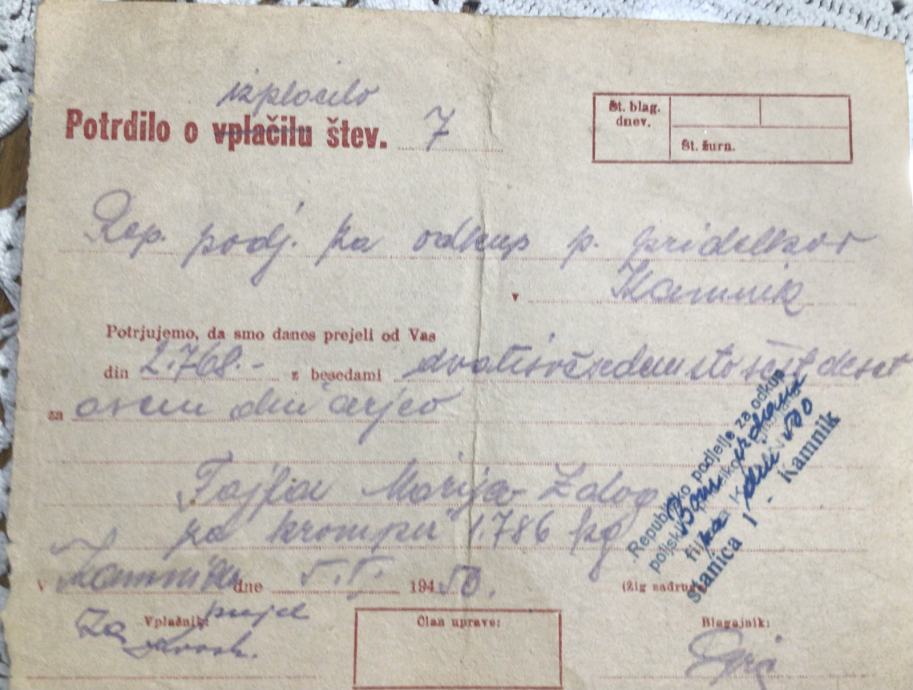 izplačilo
Potrdilo o vplačilu štev. 7
Št. blag. dnev.
Št. žurn.
Rep. podj. za odkup p. pridelkov
v Kamnik
Potrjujemo, da smo danes prejeli od Vas
din 2.768.- z besedami dvatisočsedemstošestdeset
za osem dinarjev
Marija Zalog
za krompir 1.786 kg
v Kamniku dne 5.V. 194 50.
(Žig nadruga)
Republiško podjetje za odkup
Stanica 1 - Kamnik
Vplačnik: prejel
Za
Član uprave:
Blagajnik: